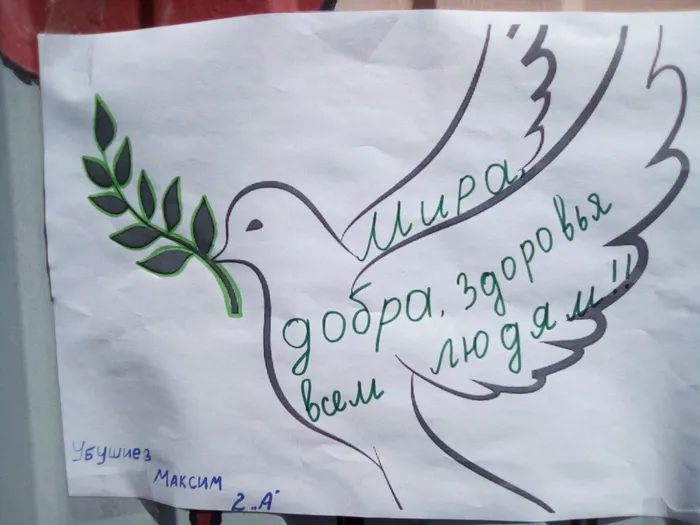 Мира,
добра, здоровья
всем людям!!
Убушиез
Максим
2 „А"